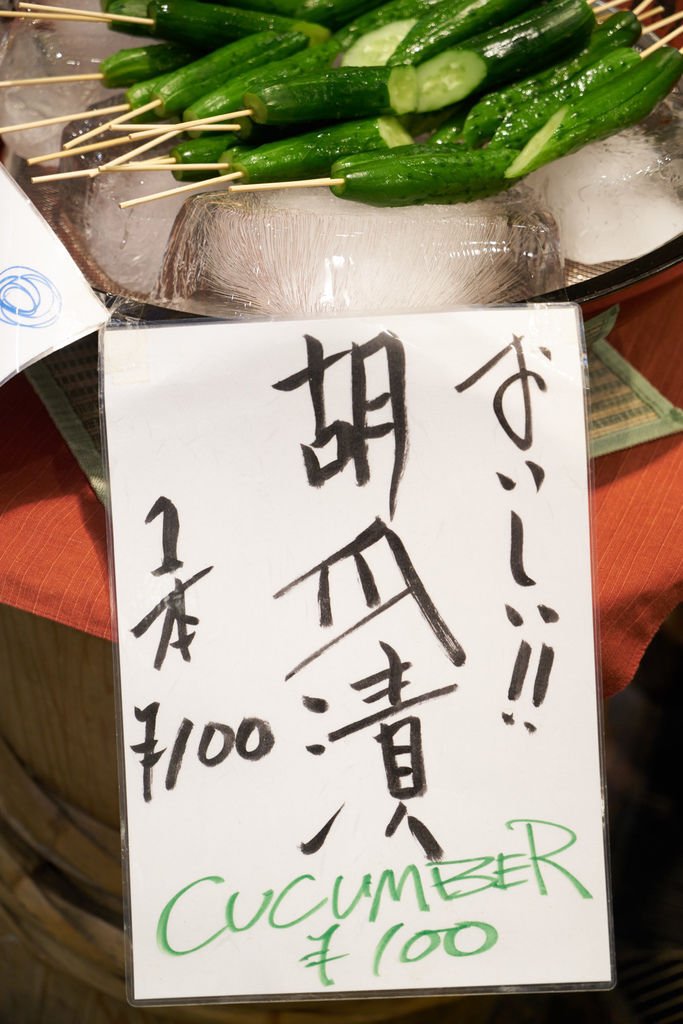 おいしい!!
胡瓜漬
1本
¥100
CUCUMBER
¥100